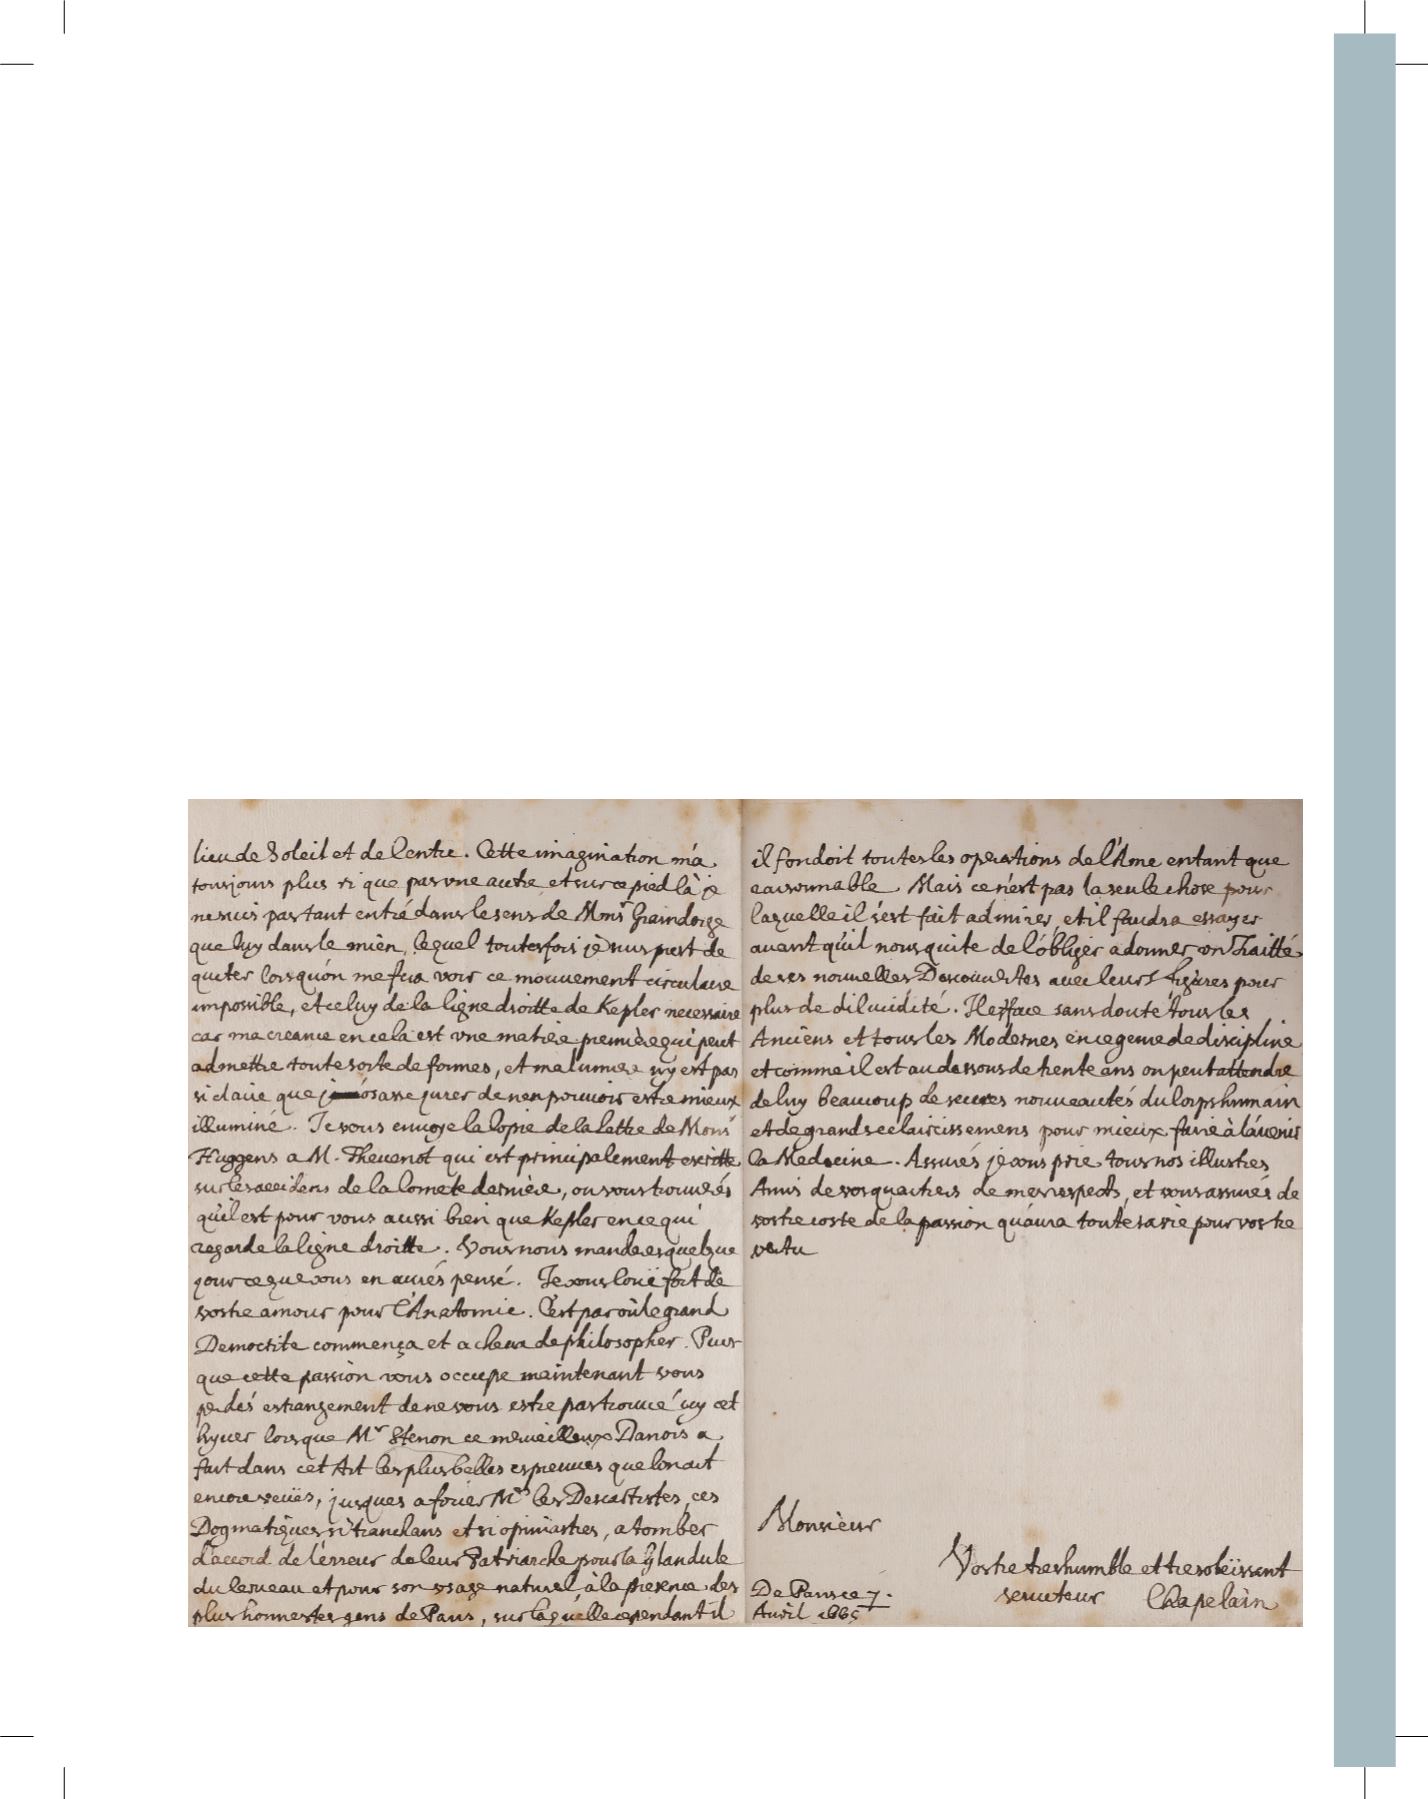 lieu de Soleil et de Centre. Cette imagination m'a
tousjours plus si que pas vne autre, et sur ce pied là je
ne suis pas tant entré dans le sens de Monsr Graindorge
que luy dans le mien, lequel toutesfois je suis prest de
quiter lorsqu'on me fera voir ce mouuement circulaire
impossible, et celuy de la ligne droitte de Kepler necessaire
car ma creance en cela est vne matiere premiere qui peut
admettre toute sorte de formes, et ma lumiere n'y est pas
si claire que j'osasse jurer de n'en pouuoir estre mieux
illuminé. Je vous enuoye la Copie de la lettre de Monsr
Huggens a M. Theuenot qui est principalement escritte
sur les accidens de la Comete derniere, ou vous trouuerés
qu'il est pour vous aussi bien que Kepler en ce qui
regarde la ligne droitte. Vous nous manderes quelque
jour ce que vous en aurés pensé. Je vous loüe fort de
vostre amour pour l'Anatomie. C'est par où le grand
Democrite commença et acheua de philosopher. Puis
que cette passion vous occupe maintenant vous
perdés estrangement de ne vous estre pas trouué icy cet
hyuer lorsque Mr Stenon ce merueilleux Danois a
fait dans cet Art les plus belles espreuues que l'on ait
encore veües, jusques a forcer Mrs les Descartistes, ces
Dogmatiques si tranchans et si opiniastres, a tomber
d'accord de l'erreur de leur Patriarche pour la glandule
du Cerueau et pour son vsage naturel, à la presence des
plus honnestes gens de Paris, sur laquelle cependant il
il fondoit toutes les operations de l'Ame entant que
raisonnable. Mais ce n'est pas la seule chose pour
laquelle il s'est fait admirer, et il faudra essayer
auant qu'il nous quite de l'obliger a donner vn Traitté
de ses nouuelles Descouuertes auec leurs figures pour
plus de dilucidité. Il efface sans doute tous les
Anciens et tous les Modernes en ce genre de discipline
et comme il est au dessous de trente ans on peut attendre
de luy beaucoup de nouueautés du Corps humain
et de grands eclaircissemens pour mieux faire à l'auenir
la Medecine. Assurés je vous prie tous nos illustres
Amis de vos quartiers de mes respects, et vous assurés de
vostre coste de la passion qu'aura toute sa vie pour vostre
vertu
Monsieur
Vostre tres humble et tres obeïssant
seruiteur Chapelain
De Paris ce 7.
Auril 1665